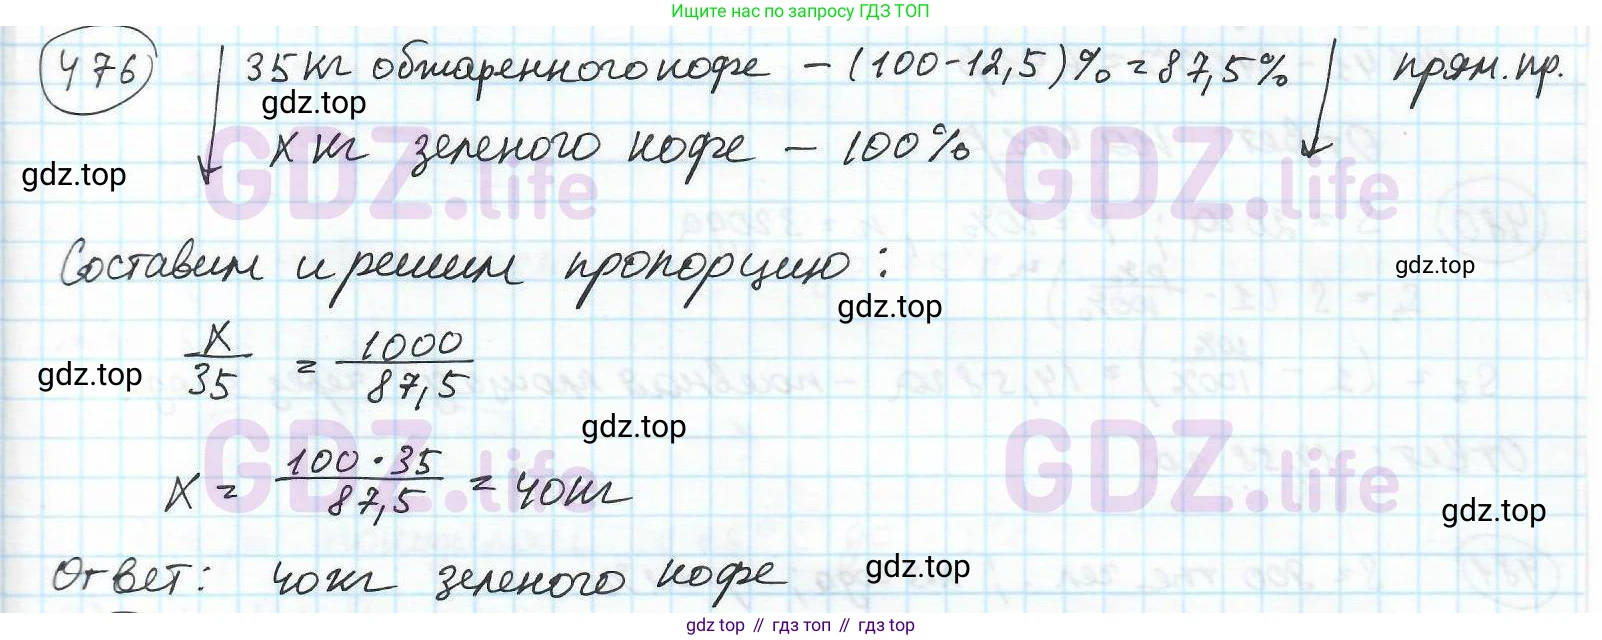 Ищите нас по запросу ГДЗ ТОП
476 35 кг обжаренного кофе – (100-12,5)% = 87,5% прям. пр.
gdz.top
x кг зеленого кофе – 100%
gdz.top
GDZ.life GDZ.life
Составим и решим пропорцию:
gdz.top
gdz.top
x/35 = 1000/87,5
gdz.top
gdz.top
GDZ.life GDZ.life
x = 100·35/87,5 = 40 кг
gdz.top
Ответ: 40 кг зеленого кофе
gdz.top
gdz top // гдз топ // гдз top